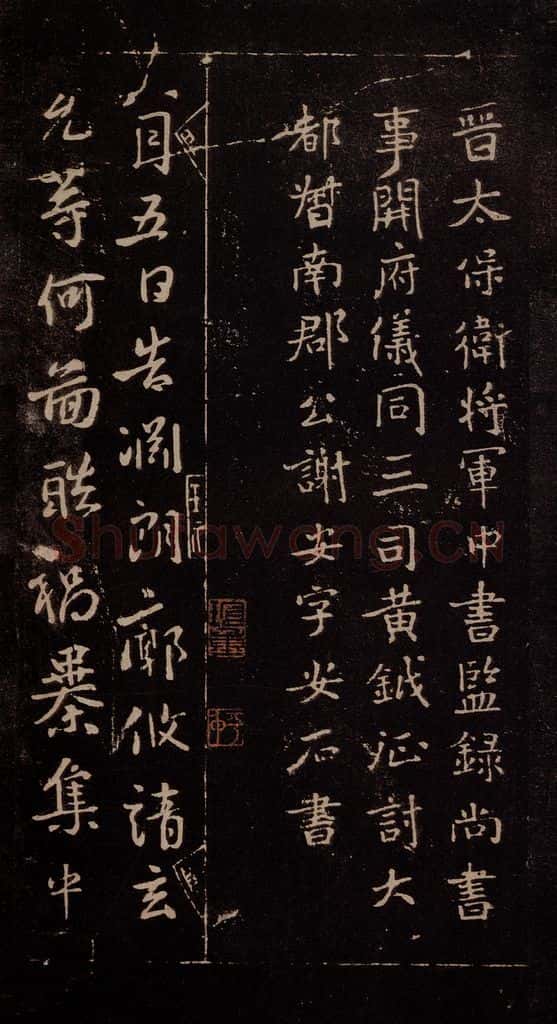 晉太保衛將軍中書監錄尚書
事開府儀同三司黃鉞征討大
都督南郡公謝安字安石書
八月五日告淵朗廓攸靖玄
允等何圖酷禍暴集中
Shufawang.CN